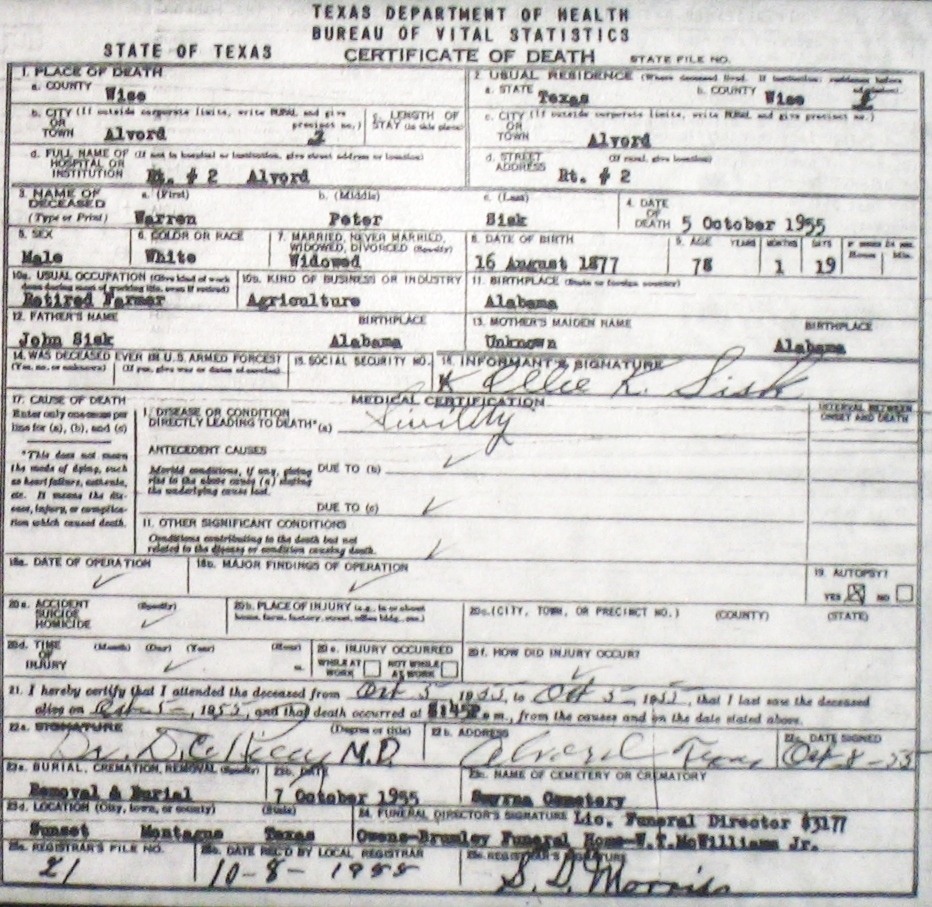 TEXAS DEPARTMENT OF HEALTH
BUREAU OF VITAL STATISTICS
STATE OF TEXAS CERTIFICATE OF DEATH STATE FILE NO.
1. PLACE OF DEATH
a. COUNTY Wise
2. USUAL RESIDENCE (Where deceased lived. If institution: residence before admission)
a. STATE Texas b. COUNTY Wise
b. CITY (If outside corporate limits, write RURAL and give precinct no.) OR TOWN Alvord
c. LENGTH OF STAY (in this place)
c. CITY (If outside corporate limits, write RURAL and give precinct no.) OR TOWN Alvord
d. FULL NAME OF (If not in hospital or institution, give street address or location) HOSPITAL OR INSTITUTION Rt. # 2 Alvord
d. STREET ADDRESS (If rural, give location) Rt. # 2
3. NAME OF DECEASED (Type or Print)
a. (First) Warren b. (Middle) Peter c. (Last) Sisk
4. DATE OF DEATH 5 October 1955
5. SEX Male
6. COLOR OR RACE White
7. MARRIED, NEVER MARRIED, WIDOWED, DIVORCED (Specify) Widowed
8. DATE OF BIRTH 16 August 1877
9. AGE YEARS 78 MONTHS 1 DAYS 19 IF UNDER 24 HRS. Hours Min.
10a. USUAL OCCUPATION (Give kind of work done during most of working life, even if retired) Retired Farmer
10b. KIND OF BUSINESS OR INDUSTRY Agriculture
11. BIRTHPLACE (State or foreign country) Alabama
12. FATHER'S NAME John Sisk BIRTHPLACE Alabama
13. MOTHER'S MAIDEN NAME Unknown BIRTHPLACE Alabama
14. WAS DECEASED EVER IN U.S. ARMED FORCES?
(Yes, no, or unknown) (If yes, give war or dates of service)
15. SOCIAL SECURITY NO.
16. INFORMANT'S SIGNATURE
Sisk
17. CAUSE OF DEATH
Enter only one cause per line for (a), (b), and (c)
*This does not mean the mode of dying, such as heart failure, asthenia, etc. It means the disease, injury, or complication which caused death.
MEDICAL CERTIFICATION
INTERVAL BETWEEN ONSET AND DEATH
I. DISEASE OR CONDITION DIRECTLY LEADING TO DEATH* (a)
ANTECEDENT CAUSES
Morbid conditions, if any, giving rise to the above cause (a) stating the underlying cause last.
DUE TO (b)
DUE TO (c)
II. OTHER SIGNIFICANT CONDITIONS
Conditions contributing to the death but not related to the disease or condition causing death.
18a. DATE OF OPERATION
18b. MAJOR FINDINGS OF OPERATION
19. AUTOPSY?
YES NO
20a. ACCIDENT SUICIDE HOMICIDE (Specify)
20b. PLACE OF INJURY (e.g., in or about home, farm, factory, street, office bldg., etc.)
20c. (CITY, TOWN, OR PRECINCT NO.) (COUNTY) (STATE)
20d. TIME OF INJURY (Month) (Day) (Year) (Hour) m.
20e. INJURY OCCURRED
WHILE AT WORK NOT WHILE AT WORK
20f. HOW DID INJURY OCCUR?
21. I hereby certify that I attended the deceased from Oct 5 1955, to Oct 5-, 1955, that I last saw the deceased
alive on Oct-5-, 1955, and that death occurred at m., from the causes and on the date stated above.
22a. SIGNATURE (Degree or title)
Dr. M.D.
22b. ADDRESS
Alvord Texas
22c. DATE SIGNED
Oct-8-55
23a. BURIAL, CREMATION, REMOVAL (Specify) Removal & Burial
23b. DATE 7 October 1955
23c. NAME OF CEMETERY OR CREMATORY Smyrna Cemetery
23d. LOCATION (City, town, or county) (State)
Sunset Montague Texas
24. FUNERAL DIRECTOR'S SIGNATURE Lic. Funeral Director #3177
Owens-Brumley Funeral Home-W.T.McWilliams Jr.
25a. REGISTRAR'S FILE NO. 21
25b. DATE REC'D BY LOCAL REGISTRAR 10-8-1955
25c. REGISTRAR'S SIGNATURE S. D. Morris